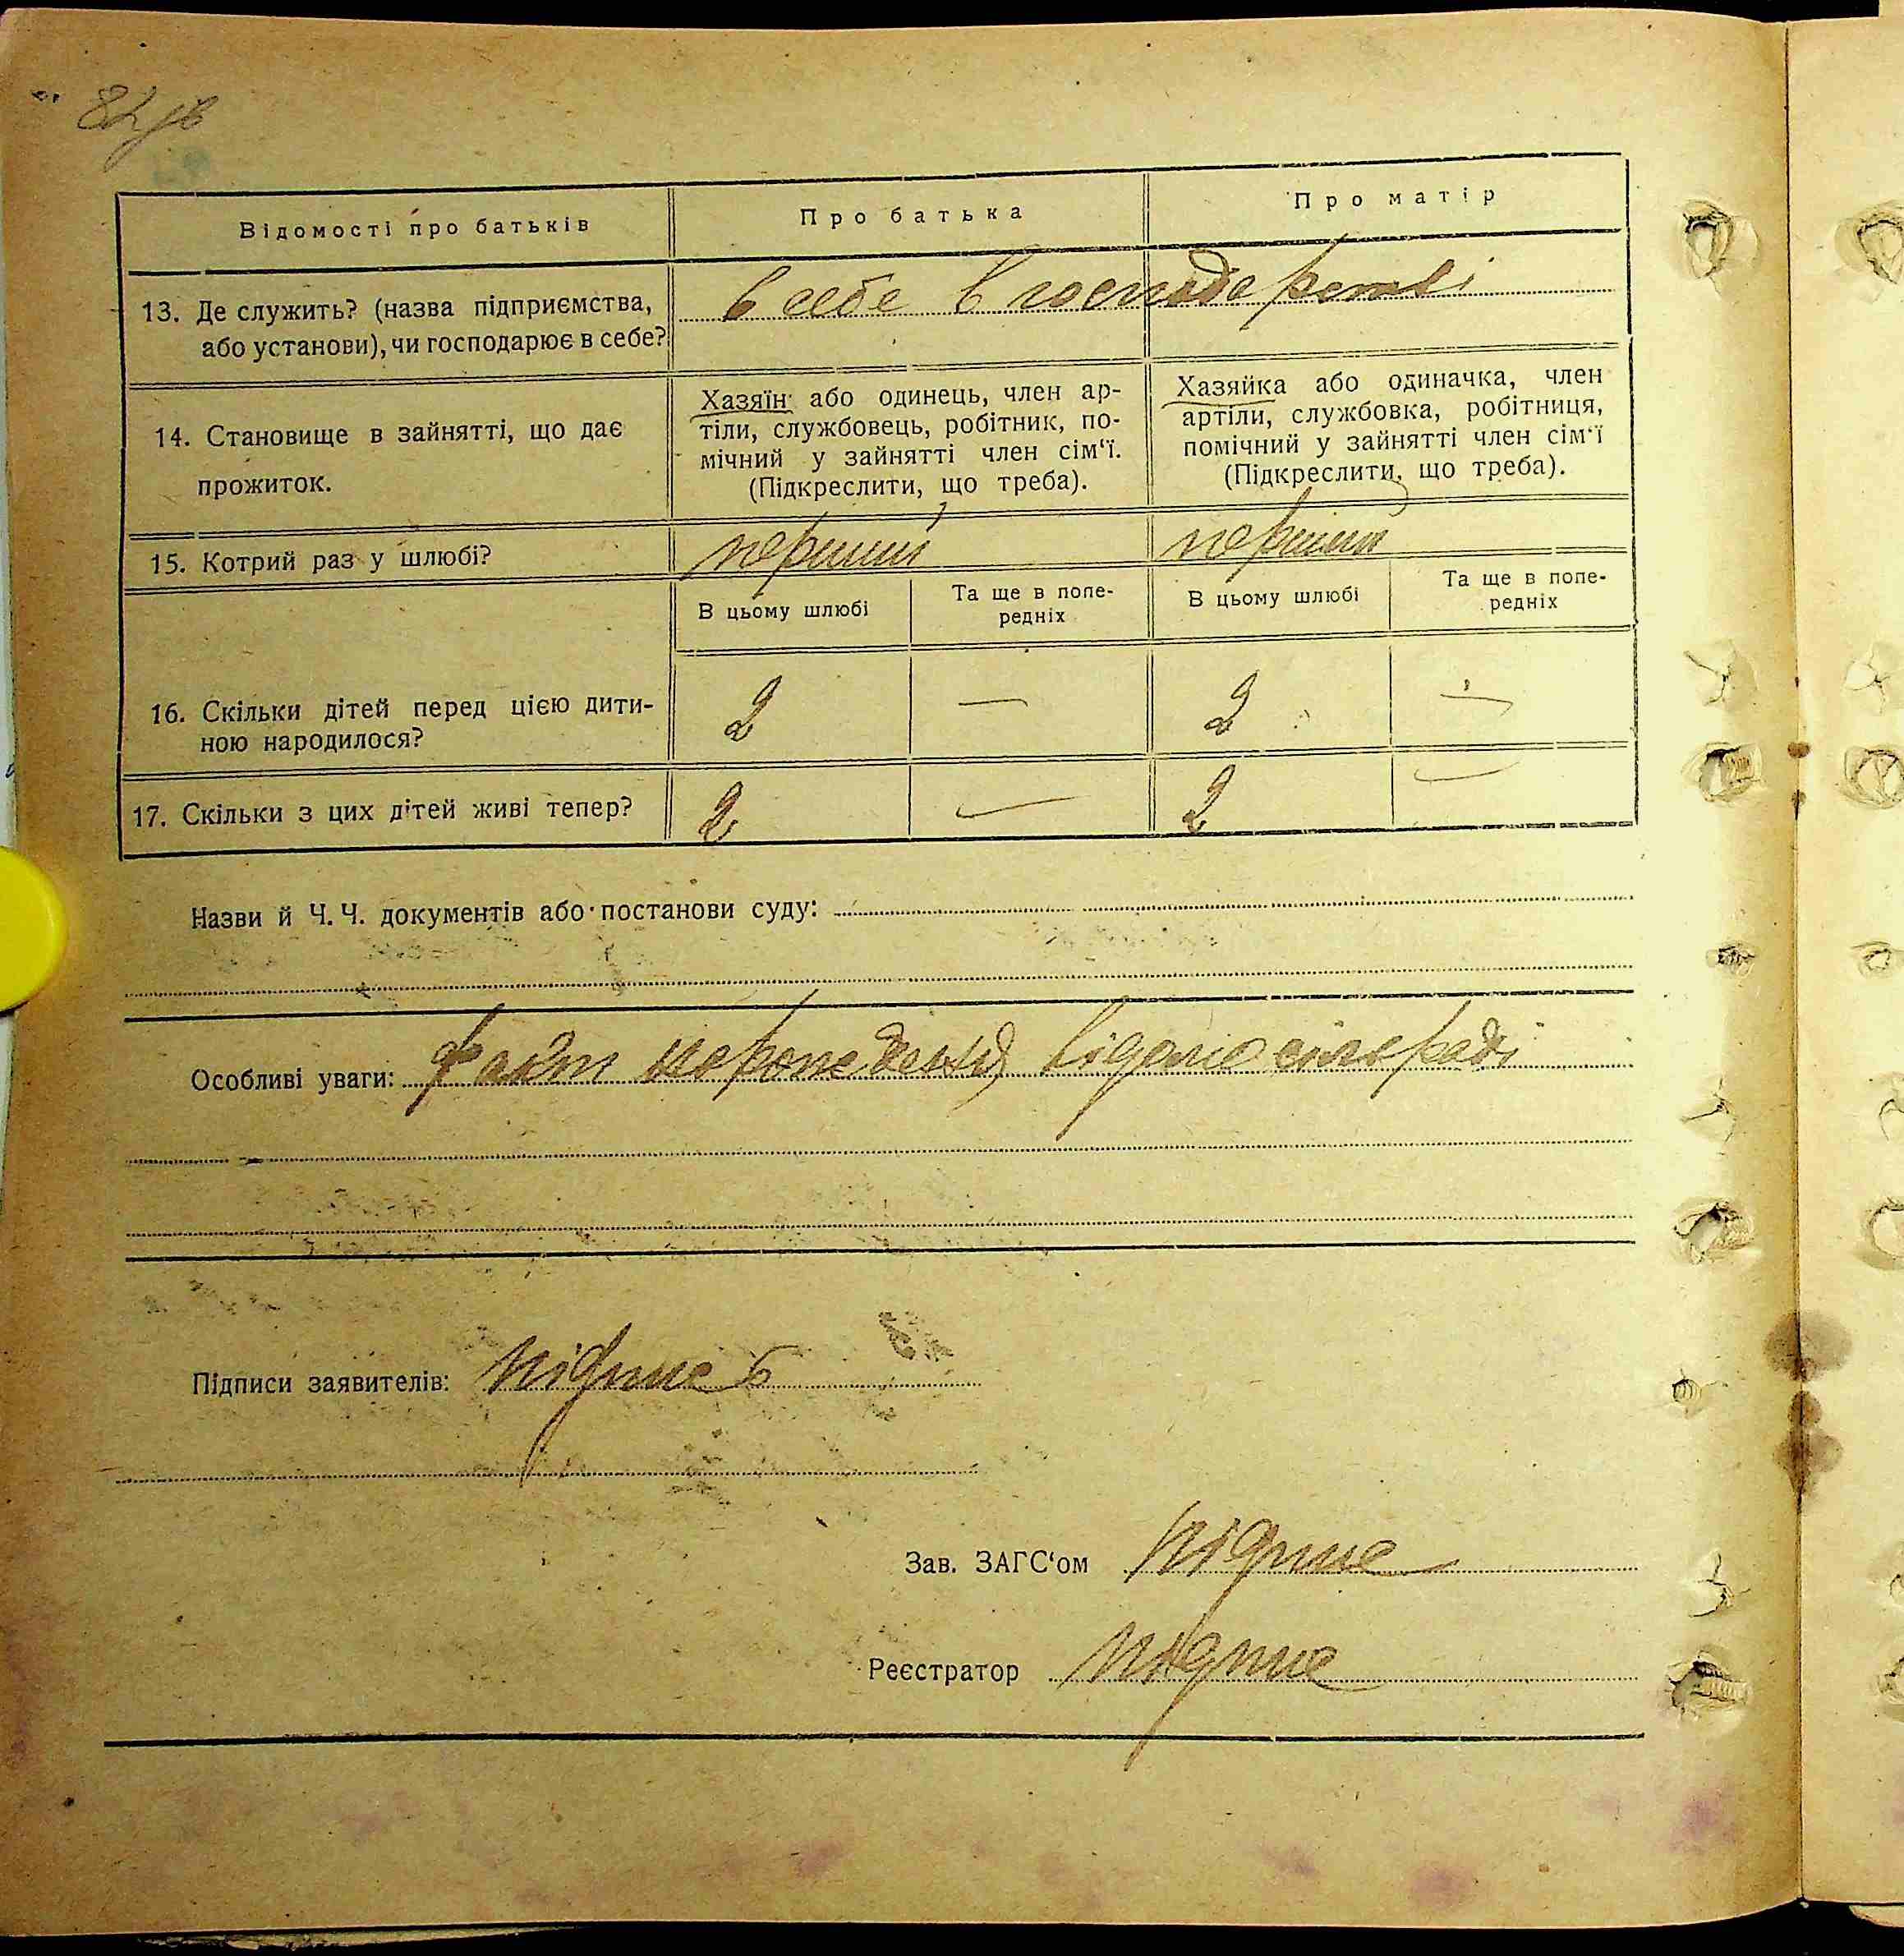 82 зв
Відомості про батьків
Про батька
Про матір
13. Де служить? (назва підприємства,
або установи), чи господарює в себе?
в себе в господарстві
14. Становище в зайнятті, що дає
прожиток.
Хазяїн або одинець, член ар-
тіли, службовець, робітник, по-
мічний у зайнятті член сім‘ї.
(Підкреслити, що треба).
Хазяйка або одиначка, член
артіли, службовка, робітниця,
помічний у зайнятті член сім‘ї
(Підкреслити, що треба).
15. Котрий раз у шлюбі?
перший
перший
В цьому шлюбі
Та ще в попе-
редніх
В цьому шлюбі
Та ще в попе-
редніх
16. Скільки дітей перед цією дити-
ною народилося?
2 — 2 —
17. Скільки з цих дітей живі тепер?
2 — 2 —
Назви й Ч. Ч. документів або постанови суду:
Особливі уваги: факт нарождення відомо сільраді
Підписи заявителів: підпис
Зав. ЗАГС‘ом підпис
Реєстратор підпис